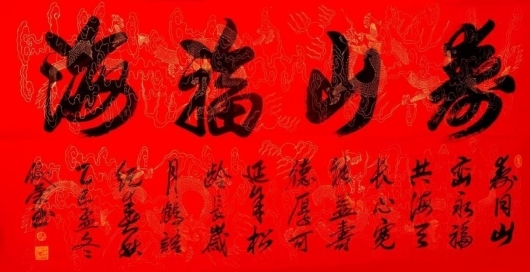 寿山福海
寿同山
岳永福
共海天
长心宽
能益寿
德厚可
延年松
龄长岁
月鹤语
纪春秋
乙巳孟冬